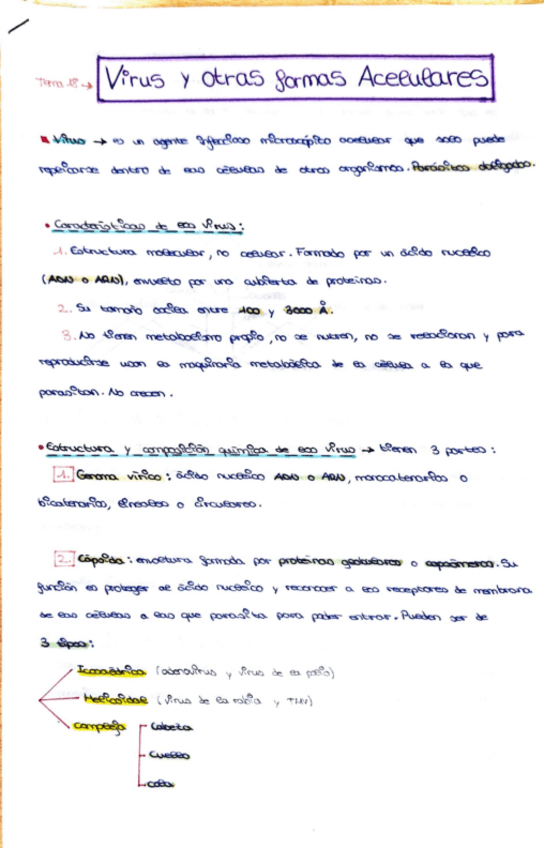 Tema 18 → Virus y otras formas Acelulares
Virus → es un agente infeccioso microscópico acelular que solo puede
replicarse dentro de las células de otros organismos. Parásitos obligados.
• Características de los virus:
1. Estructura molecular, no celular. Formado por un ácido nucleico
(ADN o ARN), envuelto por una cubierta de proteínas.
2. Su tamaño oscila entre 100 y 3000 Å.
3. No tienen metabolismo propio, no se nutren, no se relacionan y para
reproducirse usan la maquinaria metabólica de la célula a la que
parasitan. No crecen.
• Estructura y composición química de los virus → tienen 3 partes:
1. Genoma vírico: ácido nucleico ADN o ARN, monocatenarios o
bicatenarios, lineales o circulares.
2. Cápsida: envoltura formada por proteínas globulares o capsómeros. Su
función es proteger al ácido nucleico y reconocer a los receptores de membrana
de las células a las que parasita para poder entrar. Pueden ser de
3 tipos:
Icosaédrica (adenovirus y virus de la polio)
Helicoidal (virus de la rabia y TMV)
compleja
Cabeza
Cuello
cola